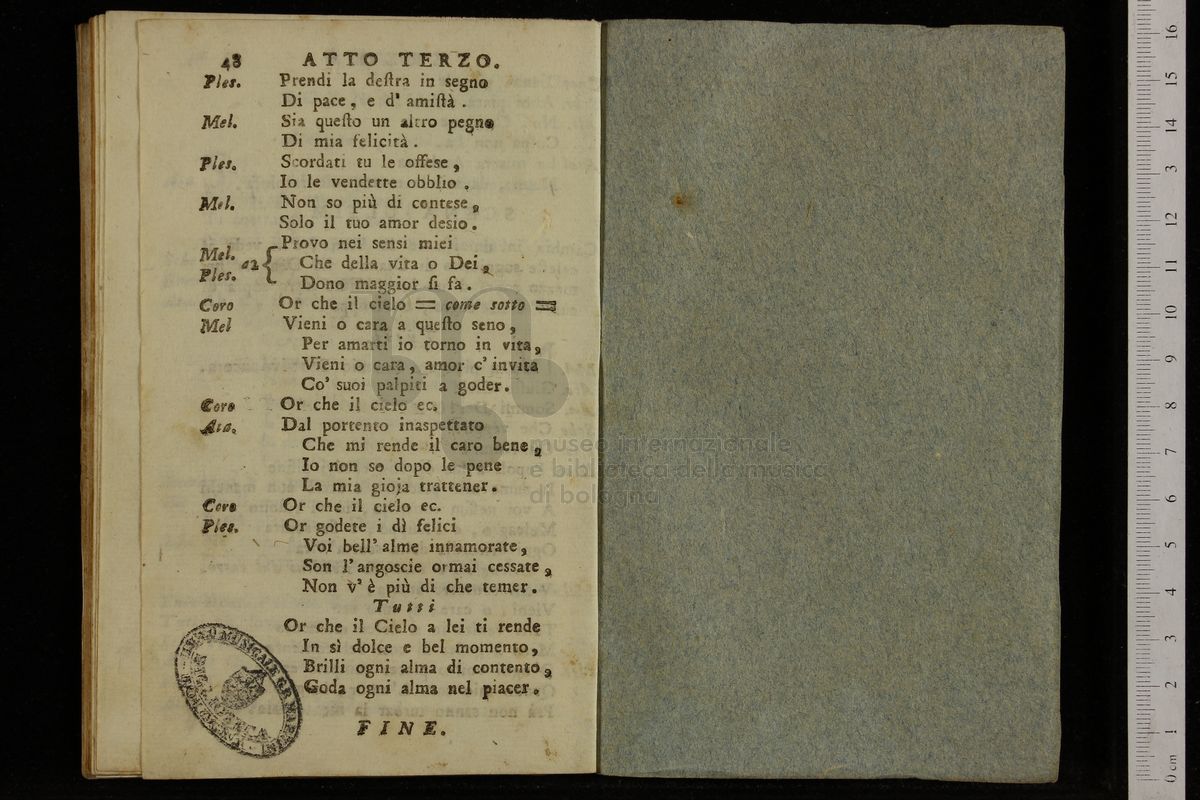 48 ATTO TERZO.
Ples. Prendi la deſtra in segno
Di pace, e d' amiſtà.
Mel. Sia queſto un altro pegno
Di mia felicità.
Ples. Scordati tu le offese,
Io le vendette obblio.
Mel. Non so più di contese,
Solo il tuo amor desio.
Provo nei sensi miei
Mel. Ples. a2 { Che della vita o Dei,
Dono maggior ſi fa.
Coro Or che il cielo = come sotto =
Mel Vieni o cara a queſto seno,
Per amarti io torno in vita,
Vieni o cara, amor c' invita
Co' suoi palpiti a goder.
Coro Or che il cielo ec.
Ata. Dal portento inaspettato
Che mi rende il caro bene,
Io non so dopo le pene
La mia gioja trattener.
Coro Or che il cielo ec.
Ples. Or godete i dì felici
Voi bell' alme innamorate,
Son l' angoscie ormai cessate,
Non v' è più di che temer.
Tutti
Or che il Cielo a lei ti rende
In sì dolce e bel momento,
Brilli ogni alma di contento,
Goda ogni alma nel piacer.
FINE.
museo internazionale
e biblioteca della musica
di bologna
0 cm 1 2 3 4 5 6 7 8 9 10 11 12 13 14 15 16